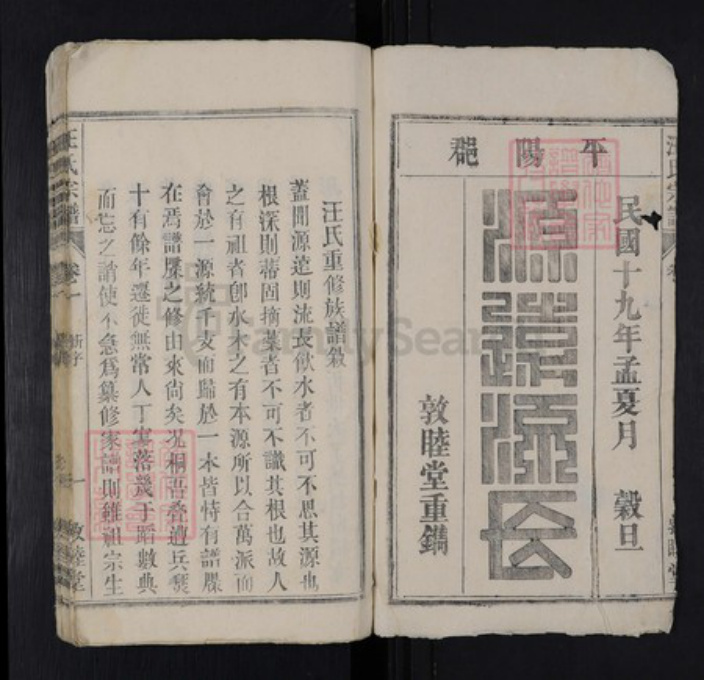 平陽郡
民國十九年孟夏月 穀旦
源遠流長
敦睦堂重鐫
汪氏重修族譜敘
蓋聞源遠則流長飲水者不可不思其源也
根深則蒂固摘葉者不可不識其根也故人
之有祖者卽水木之有本源所以合萬派而
會於一源統千支而歸於一本皆恃有譜牒
在焉譜牒之修由來尙矣况桐吾叠遭兵燹
十有餘年遷徙無常人丁寥落幾于蹈數典
而忘之誚使不急爲纂修家譜則雖祖宗生
汪氏宗譜
卷一
新序
一
敦睦堂
FamilySearch